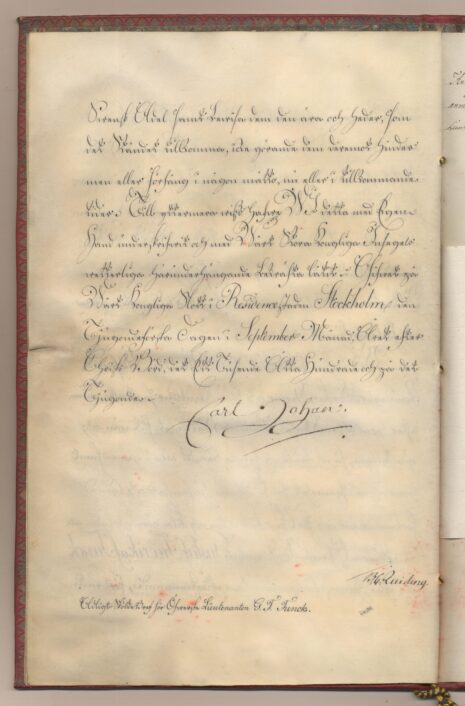 Svenskt Adel samt bevisa dem den ära och heder, som
det Ståndet tillkommer, icke görande dem deremot hinder
men eller förfång i någon måtto, nu eller i tillkommande
tider. Till yttermera visso hafve WI detta med Egen
Hand underskrifvit och med Wårt Stora Kongliga Insegels
vetterliga härunderhängande bekräfta låtit. Gifvet på
Wårt Kongliga Slott i Residence staden Stockholm, den
Tjugondeförsta Dagen i September Månad, Året efter
Christi Börd, det Ett Tusende Åtta Hundrade och på det
Tjugonde.
Carl Johan.
Adeligt Sköldebref för Öfverste Lieutenanten G. F. Funck.